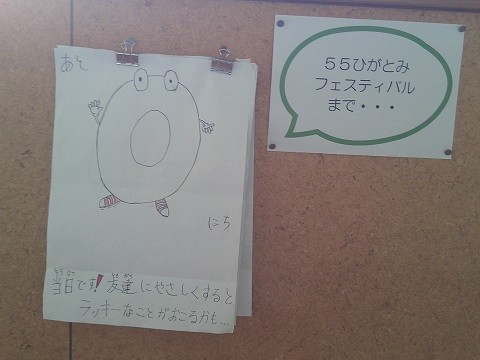 あと
にち
当日です！友達にやさしくすると
ラッキーなことがおこるかも…
５５ひがとみ
フェスティバル
まで・・・